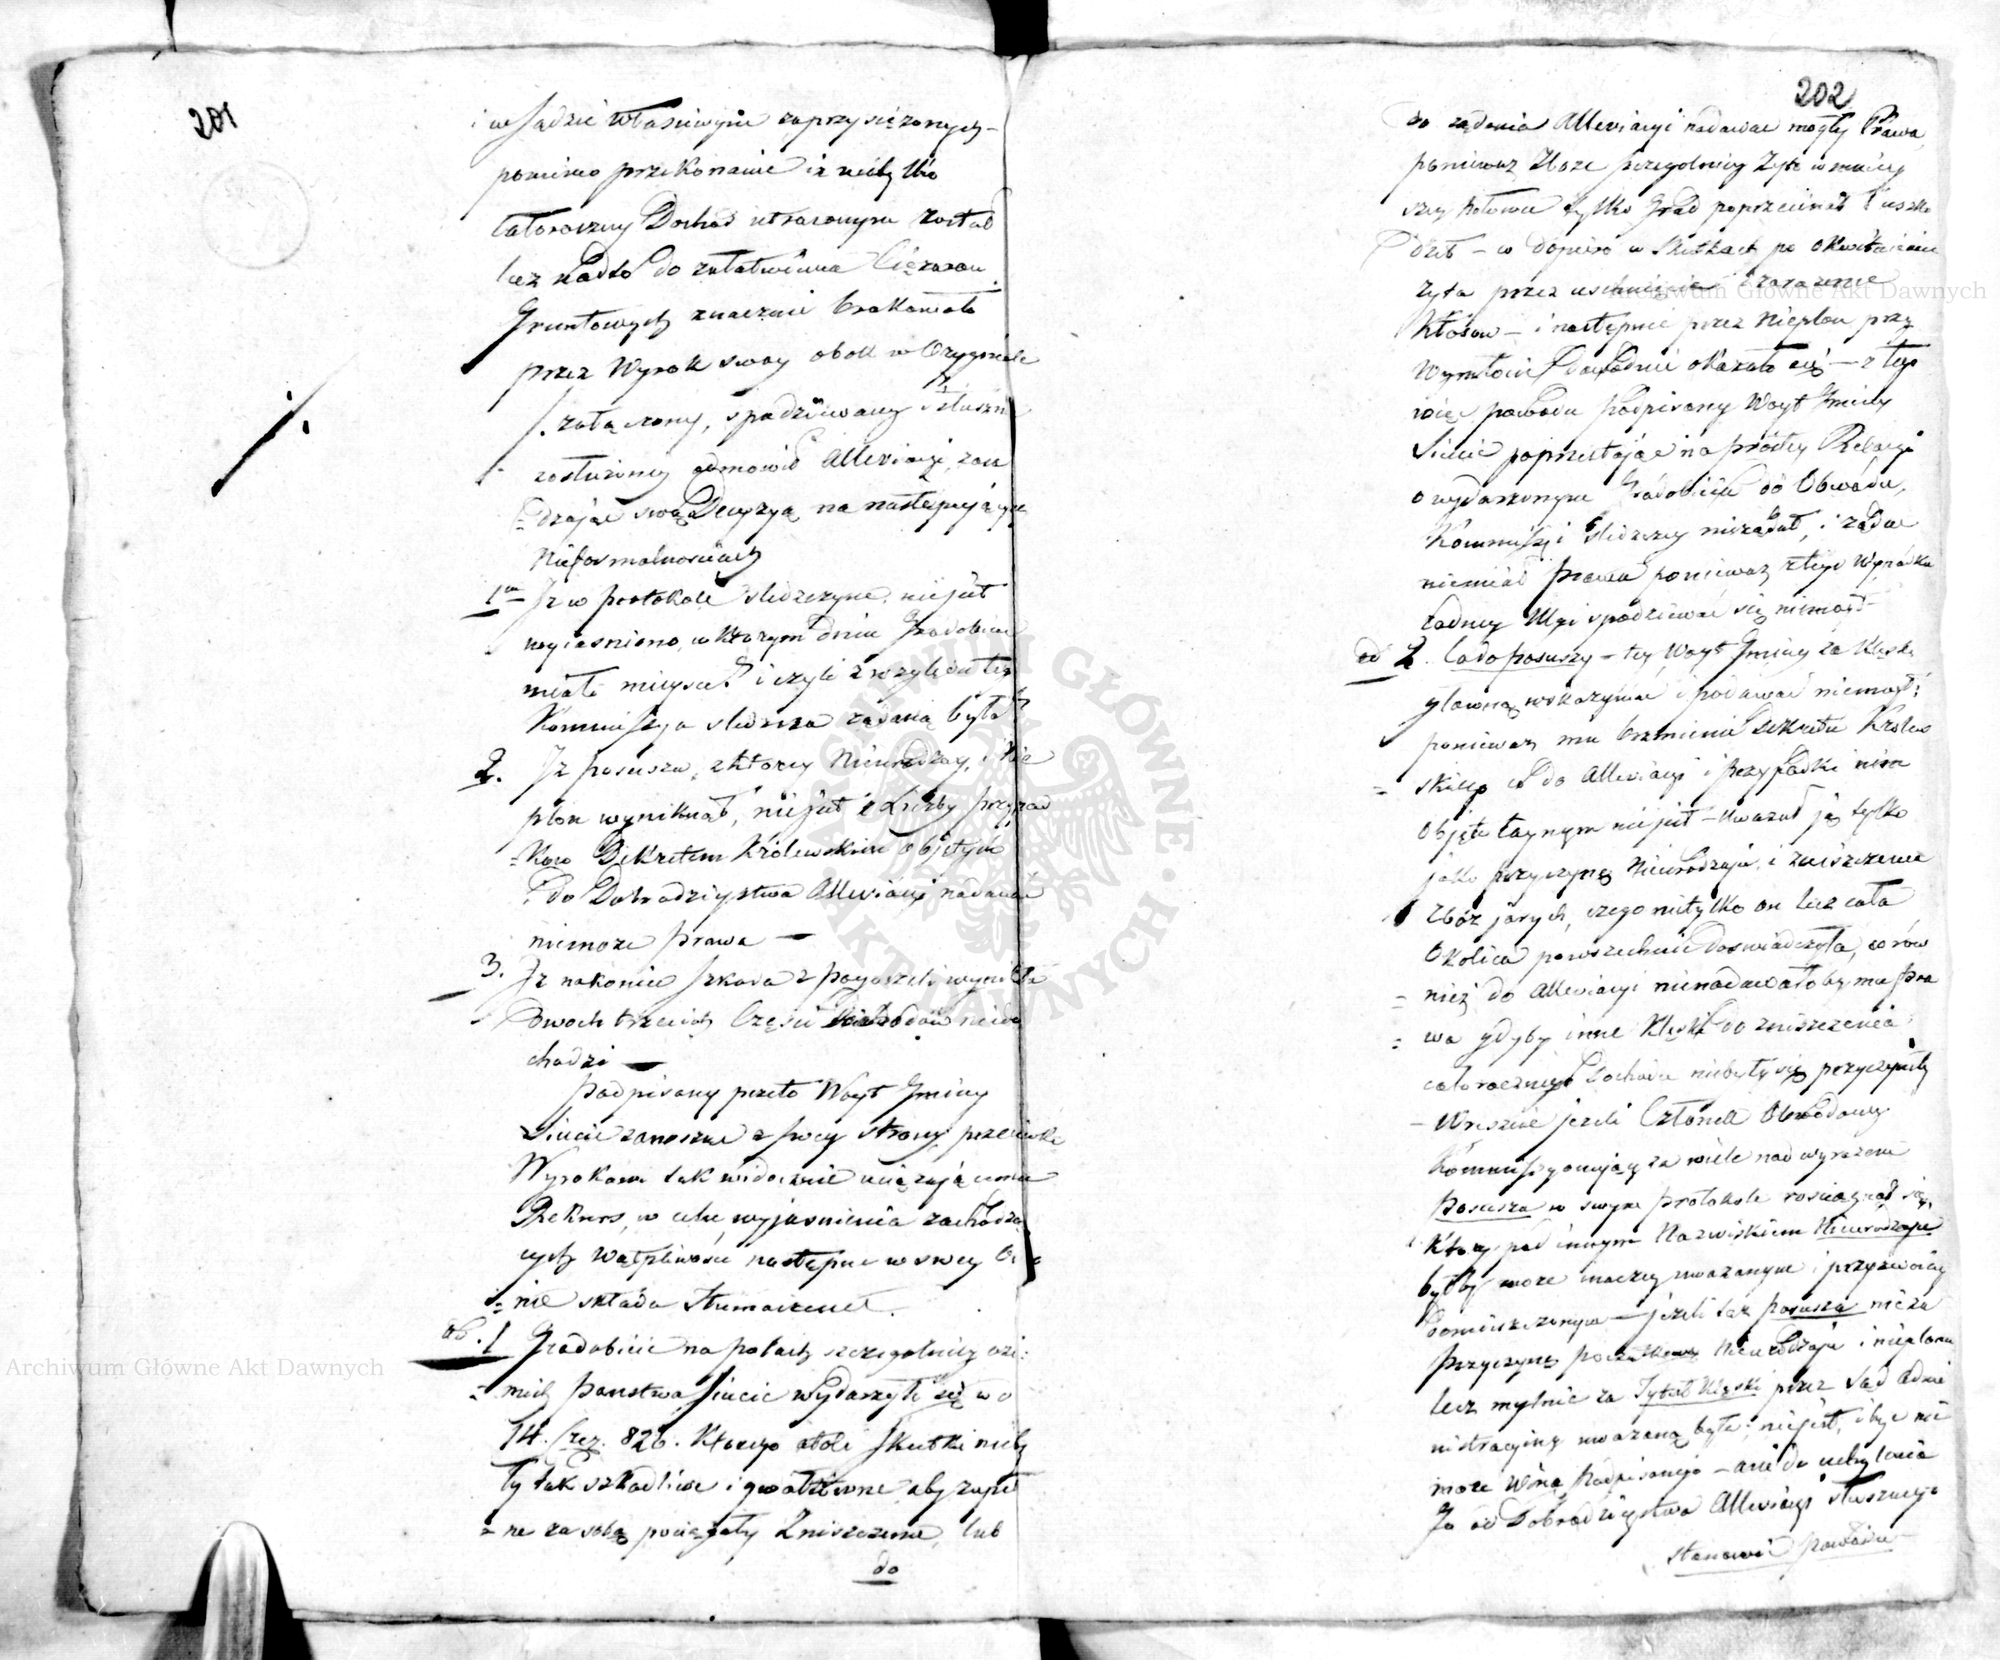 201
i w Sądzie właściwym zaprzysiężonych
pomimo przekonanie iż nietylko
całoroczny Dochód utraconym został
lecz nadto do załatwienia Ciężarow
Gruntowych znacznie brakowało
przez Wyrok swoy obok w Oryginale
/. załączony, spodziewaney i słusznie
zasłużoney odmowił Allewiacyi, zasa
dzając swą Decyzyą na następujących
Nieformalnościach
1mo Iż w protokole śledczym nie jest
wyiaśniono, w którym dniu Gradobicie
miało mieysce? i czyli z względu tego
Kommissya śledcza żądaną była?
2. Iż posusza, z ktorey Nieurodzay, i Nie
plon wyniknął, nie jest z Liczby przypad
kow Dekretem Królewskim objętych
i do Dobrodzieystwa Allewiacyi nadawać
niemoże prawa —
3. Iż nakoniec szkoda z pogorzeli wynikła
Dwoch trzecich Części Dochodów niedo
chodzi —
Podpisany przeto Woyt Gminy
Siucie zanosząc z swey strony przeciwko
Wyrokowi tak widocznie uciążającemu
Rekurs, w celu wyjaśnienia zachodzą
cych Wątpliwości następne w swey Obro
nie składa tłumaczenie.
ad. 1 Gradobicie na polach szczególniey ozi
mich Państwa Siucie wydarzyło się w d
14. Czer. 826. Ktorego atoli skutki nieby
ły tak szkodliwe i gwałtowne aby zupeł
ne za sobą pociągały Zniszczenie, lub
do
202
do żądania Allewiacyi nadawać mogły Prawa,
ponieważ Zboże szczególniey Żyto w mniey
szey połowie tylko Grad poprzecinał i uszko
dził – w dopiero w skutkach po okwitnieniu
żyta przez uschnięcie i zarażenie
Kłosow – i następnie przez Nieplon przy
Wymłocie dowodnie okazało się – z tego
więc powodu Podpisany Woyt Gminy
Siucie poprzestając na prostey Relacyi
o wydarzonym Gradobiciu do Obwodu,
Kommissyi śledczey nieżądał, i żądać
niemiał prawa ponieważ z tego Wypadku
żadney Ulgi spodziewać się niemógł
ad 2. Co do posuszy – tey Woyt Gminy za klęskę
główną wskazywać i podawać niemógł;
ponieważ mu brzmienie Dekretu Królew
skiego co do Allewiacyi i Przypadki nim
objęte taynym nie jest – uważał ją tylko
jako przyczynę Nieurodzaju, i zniszczenia
zbóż jarych, czego nietylko on lecz cała
Okolica powszechnie doświadczyła, co rów
nież do Allewiacyi nienadawałoby mu Pra
wa gdyby inne Klęski do zniszczenia
całorocznego Dochodu niebyły się przyczyniły
– Wreszcie jeżeli Członek Obwodowy
Kommissyonujący za wiele nad wyrazem
Posusza w swym protokole rosciągnął się,
Ktory pod innym Nazwiskiem Nieurodzaju
byłby może inaczey uważanym i przyzwoiciey
domieszczonym – jeżeli taż posusza nie za
Przyczynę początkową Nieurodzaju i nieplonu
lecz mylnie za Tytuł Klęski przez Sąd Admi
nistracyiny uważaną była; niejest, i być nie
może Winą Podpisanego – ani do uchylenia
Go od Dobrodzieystwa Allewiacyi słusznego
stanowić powodu –
Archiwum Główne Akt Dawnych
Archiwum Główne Akt Dawnych
ARCHIWUM GŁÓWNE AKT DAWNYCH